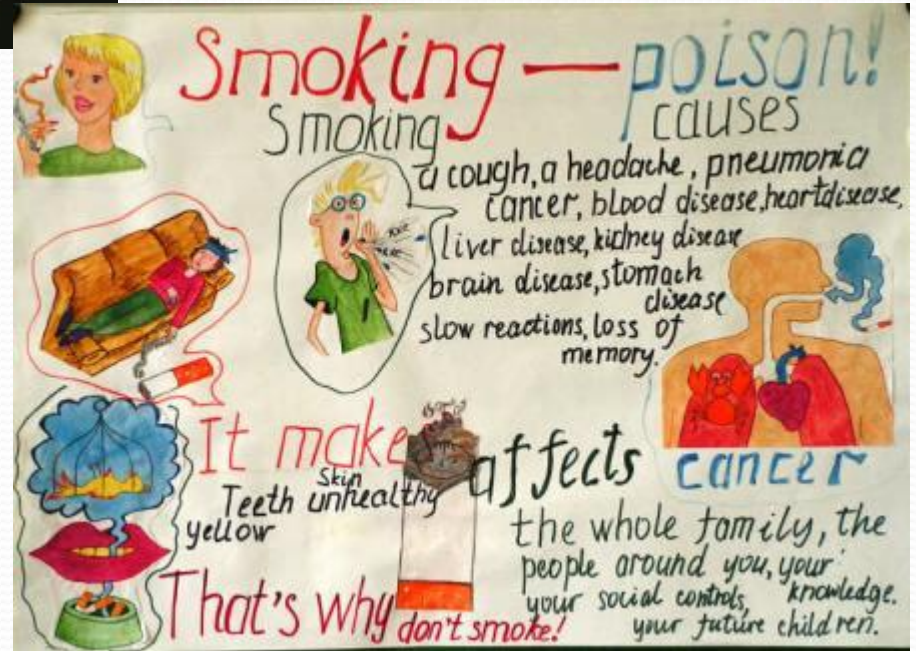 Smoking — poison!
Smoking causes
a cough, a headache, pneumonia
cancer, blood disease, heart disease,
liver disease, kidney disease
brain disease, stomach
disease
slow reactions, loss of
memory.
cancer
It make
Skin
Teeth unhealthy
yellow
affects
the whole family, the
people around you, your
your social controls, knowledge.
your future children.
That's why don't smoke!